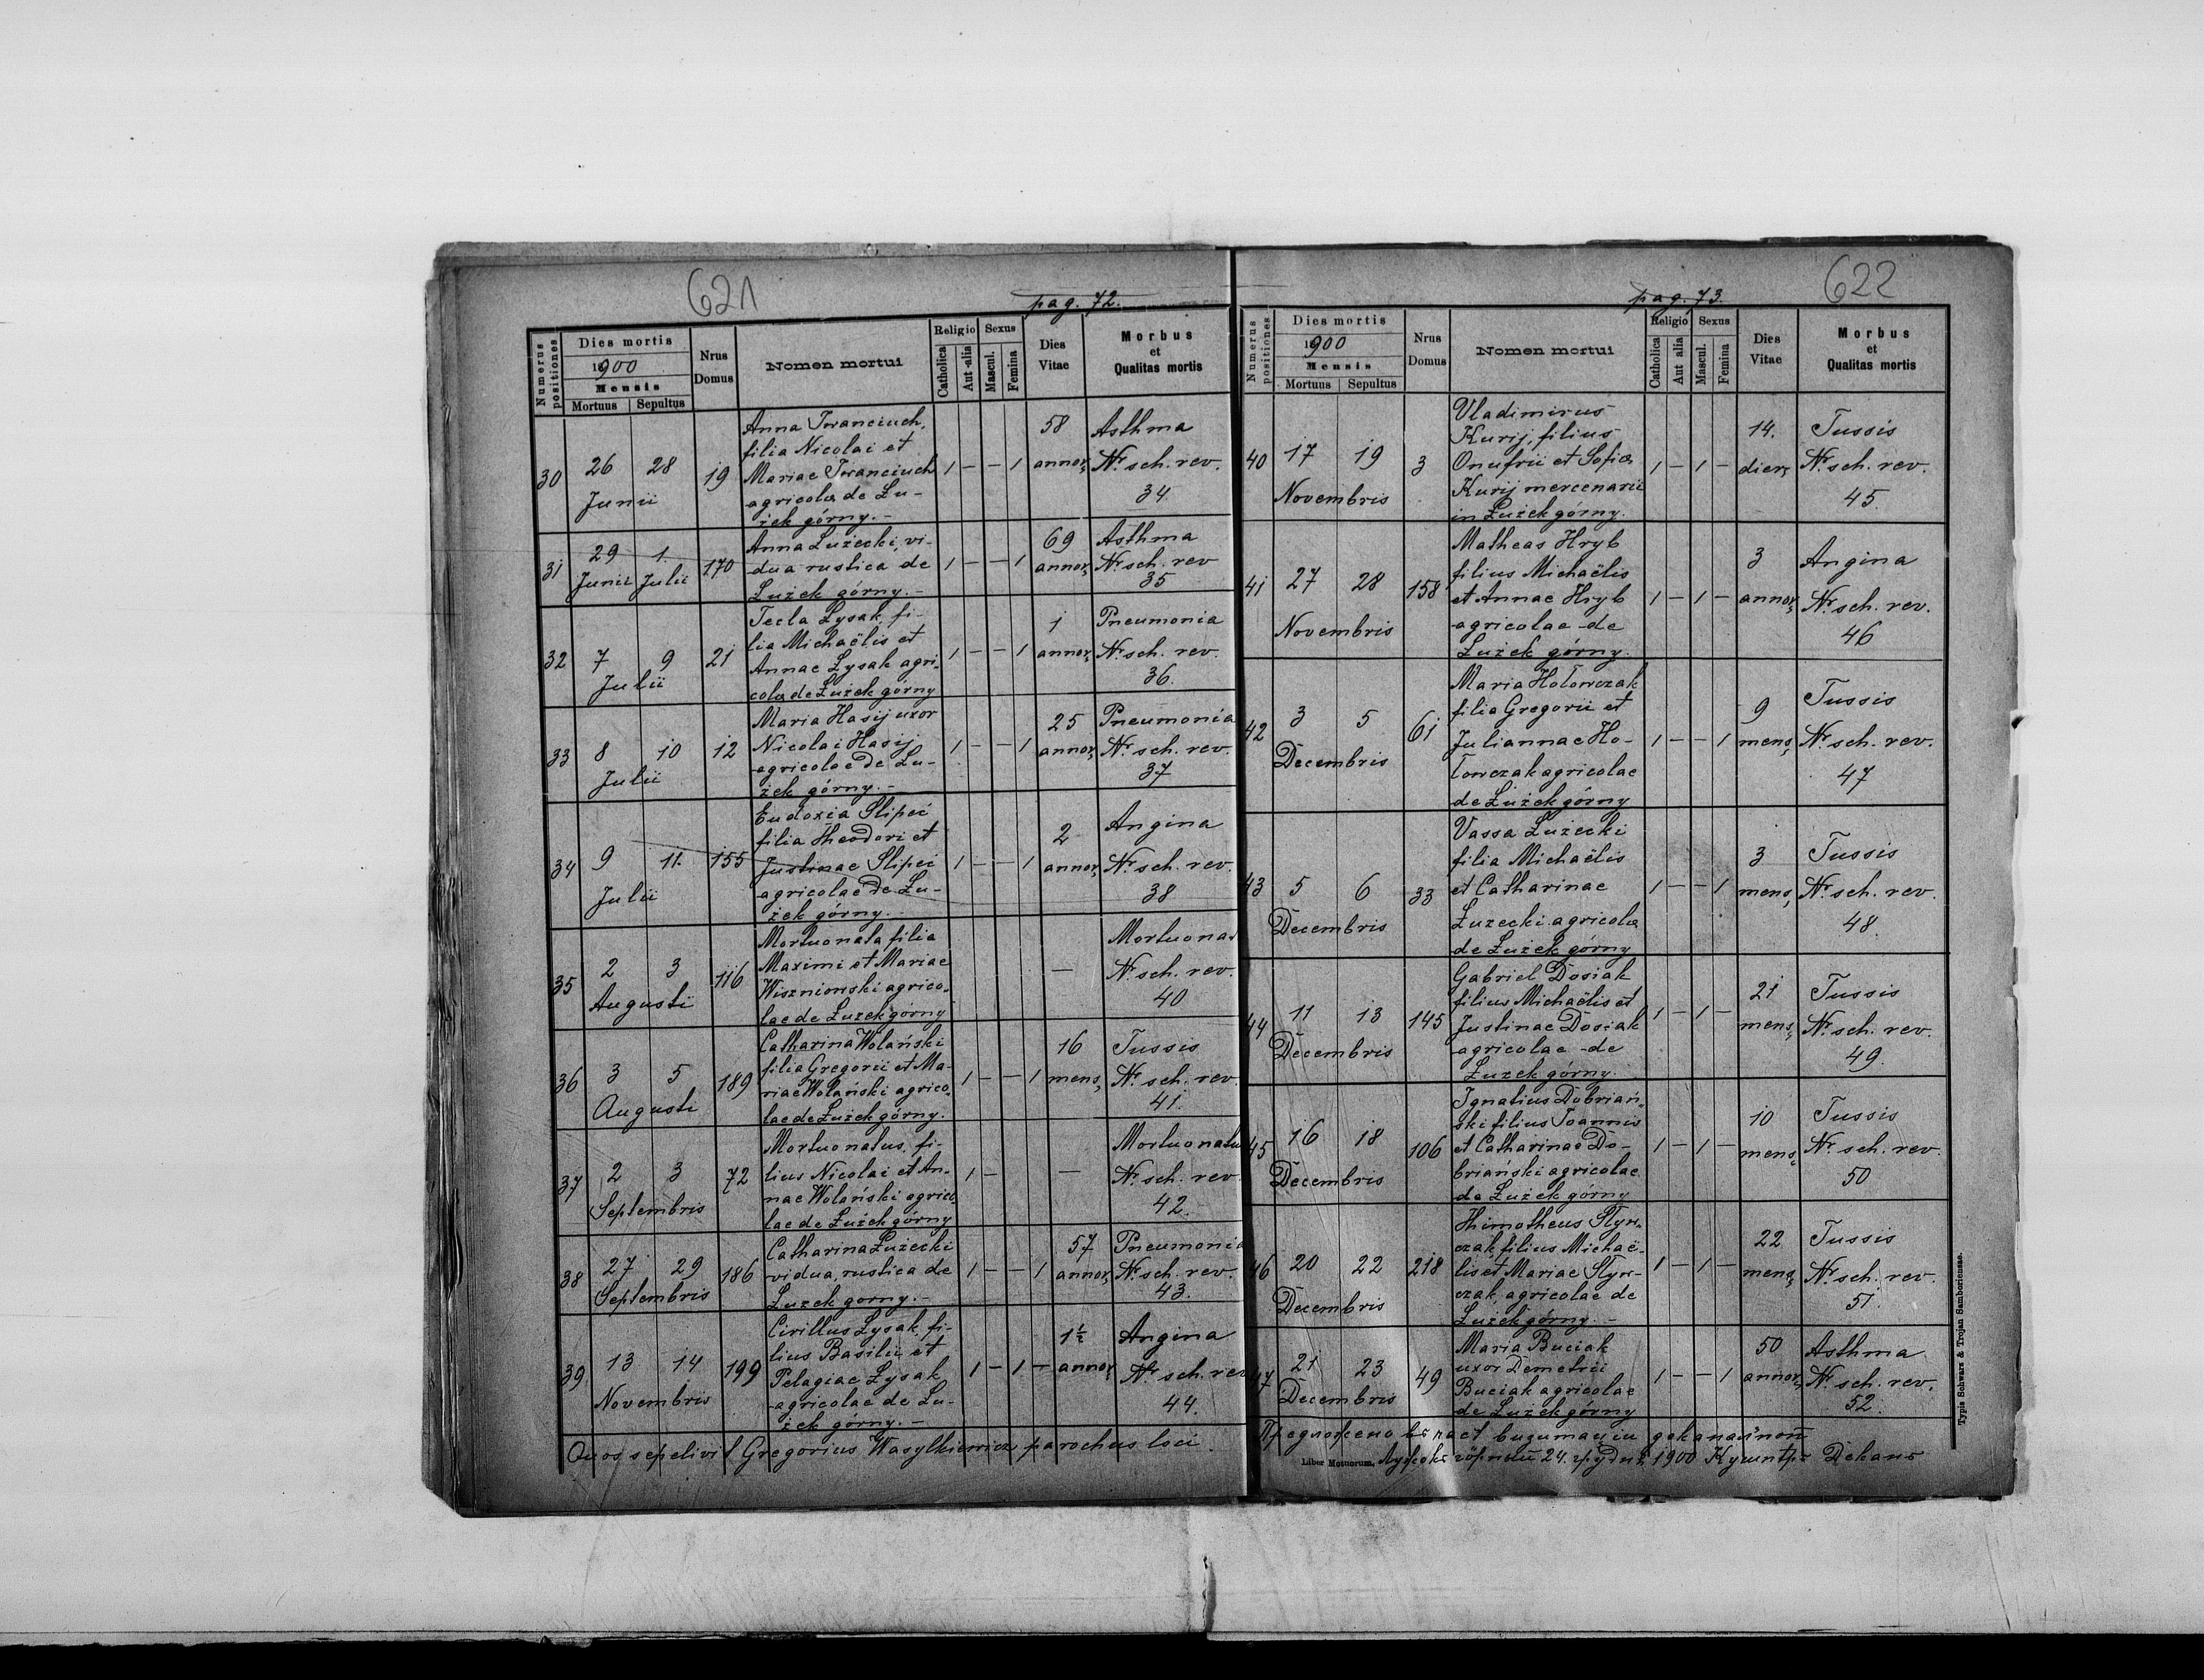 621
pag. 72.
Numerus positiones
Dies mortis
1900
Mensis
Mortuus
Sepultus
Nrus Domus
Nomen mortui
Religio
Catholica
Aut alia
Sexus
Mascul.
Femina
Dies Vitae
Morbus et Qualitas mortis
30 26 28 Junii 19
Anna Iwanciuch,
filia Nicolai et
Mariae Iwanciuch
agricolae de Łu-
żek górny.-
1 - - 1 58 annor,
Asthma
Nr. sch. rev.
34
31 29 Junii 1. Julii 170
Anna Łużecki, vi-
dua rustica de
Łużek górny.-
1 - - 1 69 annor,
Asthma
Nr. sch. rev
35
32 7 9 Julii 21
Tecla Łysak, fi-
lia Michaëlis et
Annae Łysak agri-
colae de Łużek górny
1 - - 1 1 annor,
Pneumonia
Nr. sch. rev.
36.
33 8 10 Julii 12
Maria Hasij uxor
Nicolai Hasij
agricolae de Łu-
żek górny.-
1 - - 1 25 annor,
Pneumonia
Nr. sch. rev.
37
34 9 11. Julii 155
Eudoxia Slipei
filia Theodori et
Justinae Slipei
agricolae de Łu-
żek górny.-
1 - - 1 2 annor,
Angina
Nr. sch. rev.
38
35 2 3 Augusti 116
Mortuonata filia
Maximi et Mariae
Wiszniowski agrico-
lae de Łużek górny
-
Mortuona
Nr. sch. rev.
40
36 3 5 Augusti 189
Catharina Wolański
filia Gregorii et Ma-
riae Wolański agrico-
lae de Łużek górny.
1 - - 1 16 mens,
Tussis
Nr. sch. rev.
41.
37 2 3 Septembris 72
Mortuonatus, fi-
lius Nicolai et An-
nae Wolański agrico-
lae de Łużek górny
1 - -
Mortuonatu
Nr. sch. rev.
42.
38 27 29 Septembris 186
Catharina Łużecki
vidua, rustica de
Łużek gorny.-
1 - - 1 57 annor,
Pneumonia
Nr. sch. rev.
43.
39 13 14 Novembris 199
Cirillus Łysak, fi-
lius Basilii et
Pelagiae Łysak
agricolae de Łu-
żek górny.-
1 - 1 - 1½ annor,
Angina
Nr. sch. rev
44.
Quos sepelivit Gregorius Wasylkiewicz parochus loci.
622
pag. 73.
Numerus positiones
Dies mortis
1900
Mensis
Mortuus
Sepultus
Nrus Domus
Nomen mortui
Religio
Catholica
Aut alia
Sexus
Mascul.
Femina
Dies Vitae
Morbus et Qualitas mortis
40 17 19 Novembris 3
Vladimirus
Kurij, filius
Onufrii et Sofiae
Kurij mercenarii
in Łużek górny.
1 - 1 - 14. dier,
Tussis
Nr. sch. rev.
45.
41 27 28 Novembris 158
Matheas Hryb
filius Michaëlis
et Annae Hryb
agricolae de
Łużek górny.
1 - 1 - 3 annor,
Angina
Nr. sch. rev.
46
42 3 5 Decembris 61
Maria Hołowczak
filia Gregorii et
Juliannae Ho-
łowczak agricolae
de Łużek górny
1 - - 1 9 mens,
Tussis
Nr. sch. rev.
47
43 5 6 Decembris 33
Vassa Łużecki
filia Michaëlis
et Catharinae
Łuzecki agricolae
de Łużek górny
1 - - 1 3 mens,
Tussis
Nr. sch. rev.
48.
44 11 13 Decembris 145
Gabriel Dosiak
filius Michaëlis et
Justinae Dosiak
agricolae de
Łużek górny.
1 - 1 - 21 mens,
Tussis
Nr. sch. rev.
49.
45 16 18 Decembris 106
Ignatius Dobriań-
ski filius Joannis
et Catharinae Do-
briański agricolae
de Łużek górny
1 - 1 - 10 mens,
Tussis
Nr. sch. rev.
50
46 20 22 Decembris 218
Thimotheus Styw-
czak filius Michaë-
lis et Mariae Styw-
czak, agricolae de
Łużek górny.-
1 - 1 - 22 mens,
Tussis
Nr. sch. rev.
51.
47 21 23 Decembris 49
Maria Buciak
uxor Demetrii
Buciak agricolae
de Łużek górny
1 - - 1 50 annor,
Asthma
Nr. sch. rev.
52.
Предложено въ часѣ визитаціи деканальной
Liber Motuorum. 24. грудня 1900 Деканъ
Typis Schwarz & Trojan Samboriensae.